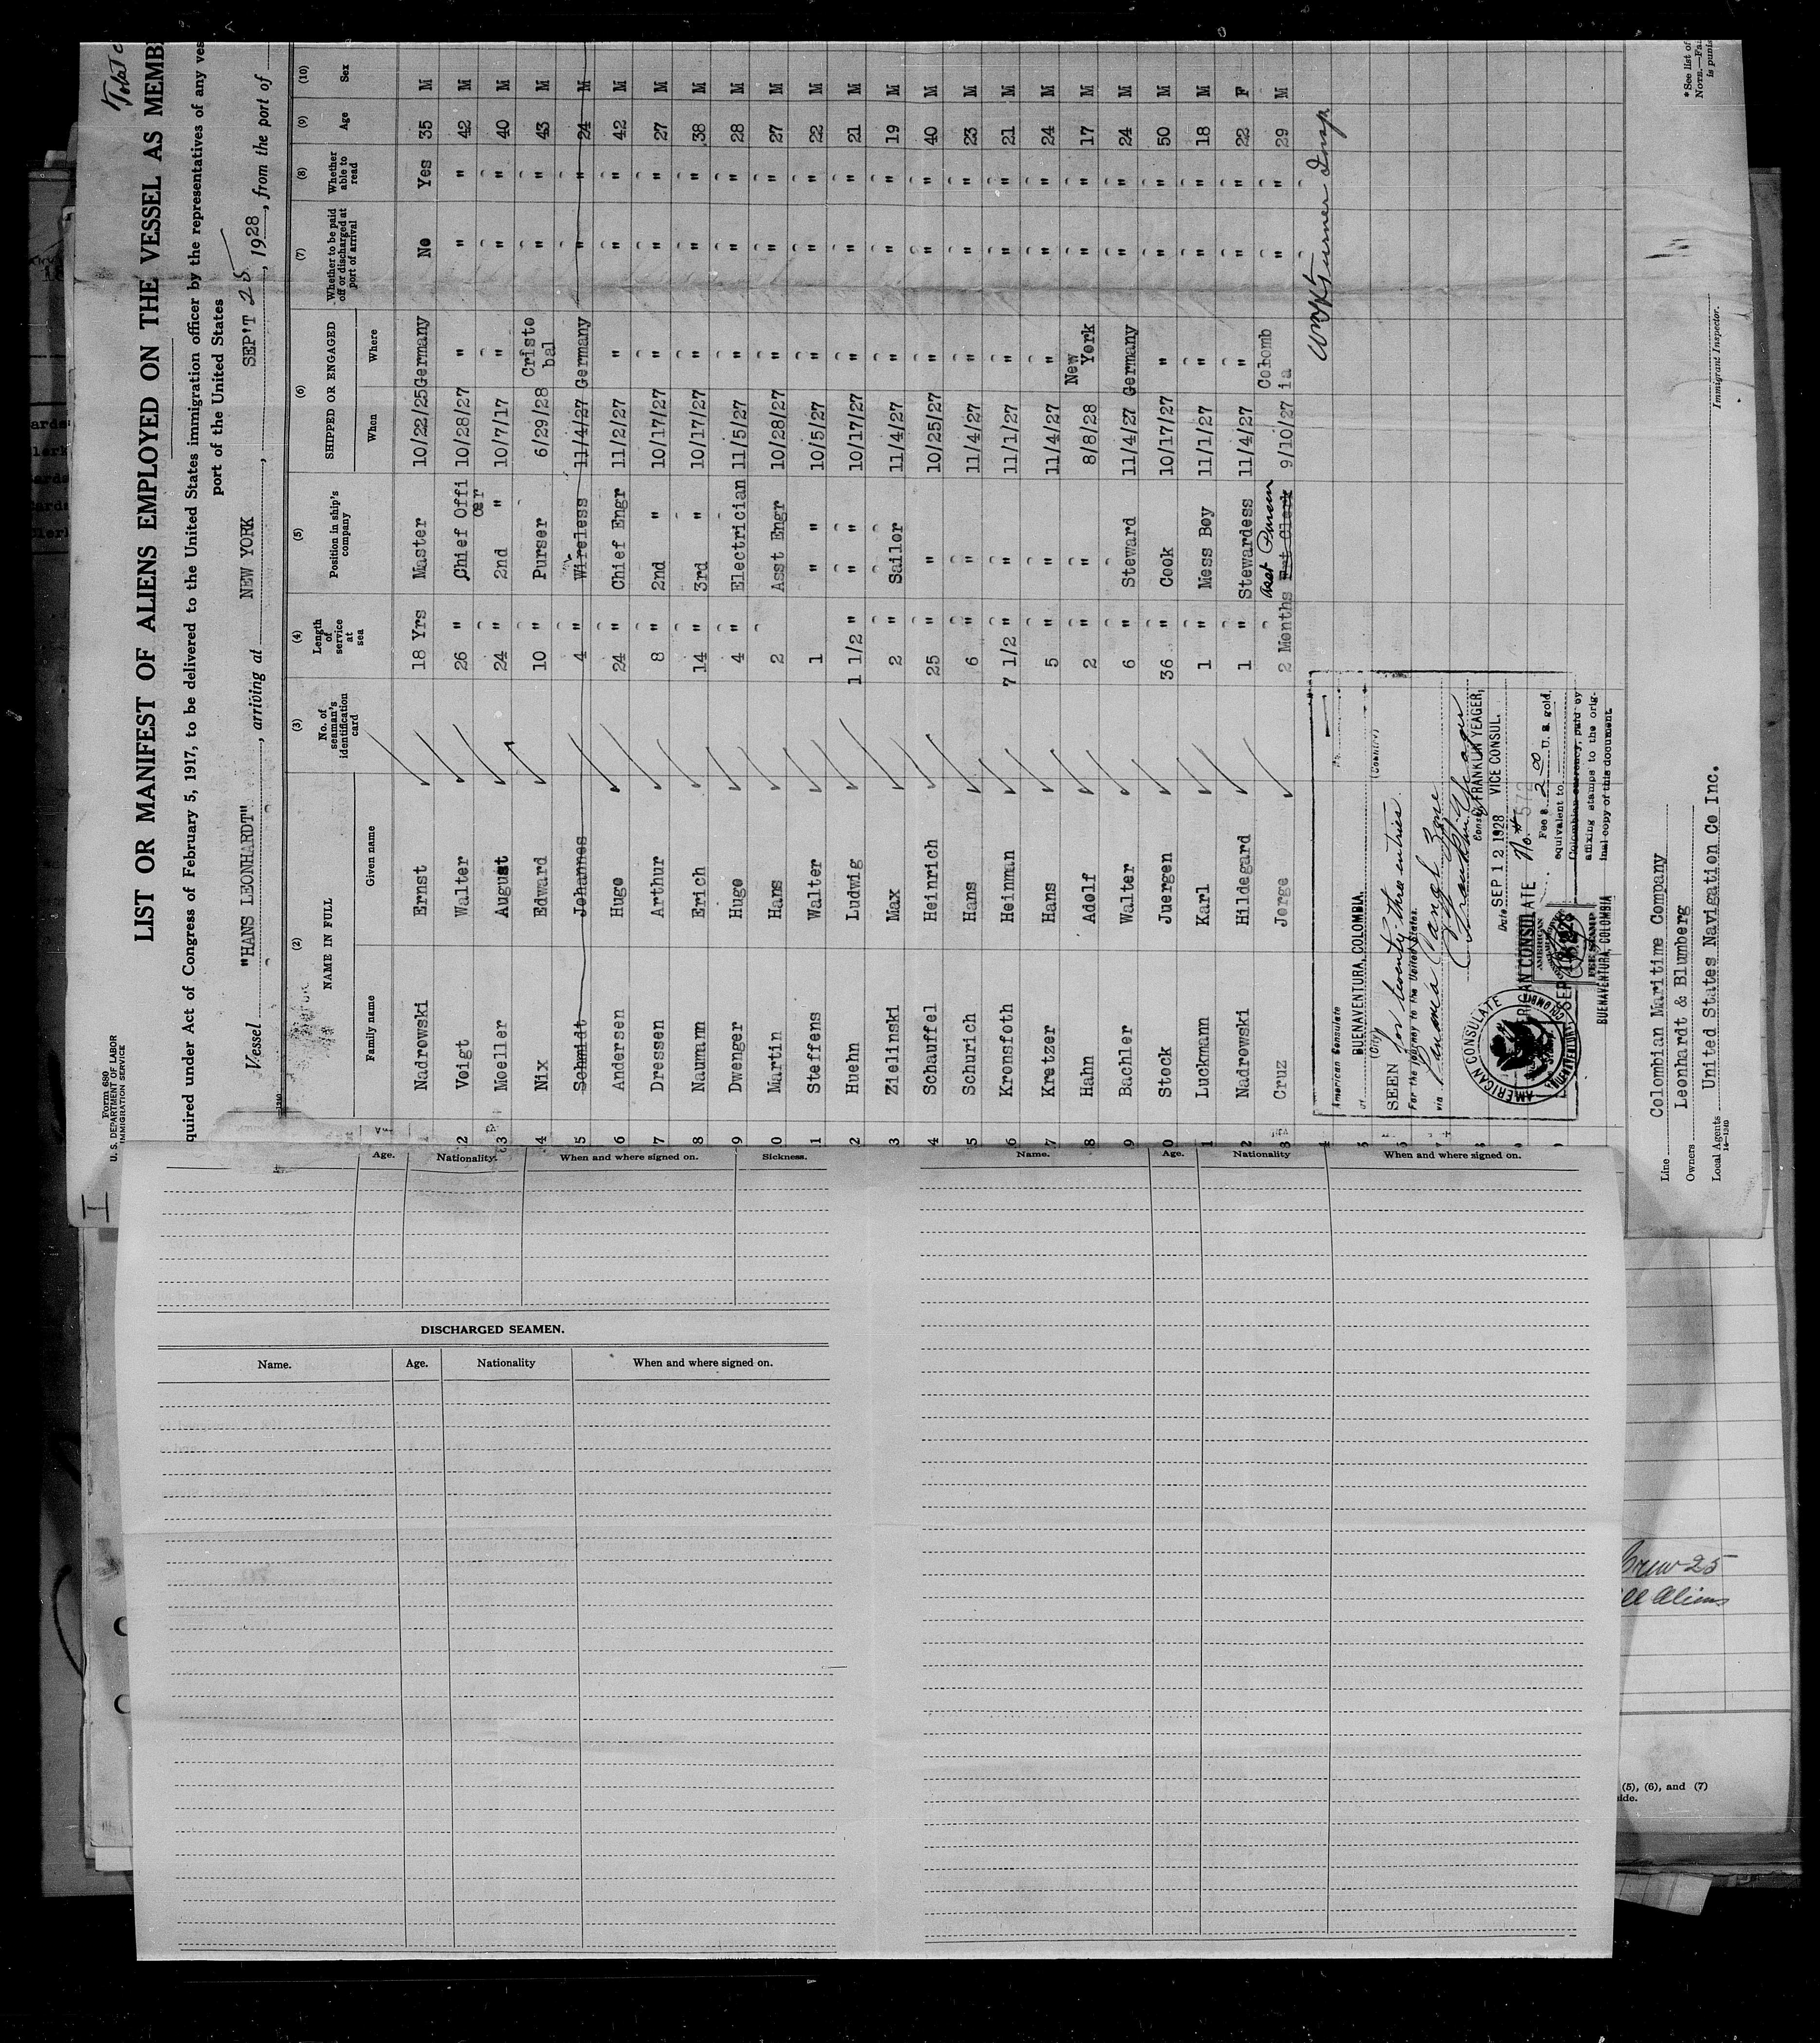 Form 680
U. S. DEPARTMENT OF LABOR
IMMIGRATION SERVICE
LIST OR MANIFEST OF ALIENS EMPLOYED ON THE VESSEL AS MEMB
quired under Act of Congress of February 5, 1917, to be delivered to the United States immigration officer by the representatives of any ves
port of the United States
Vessel "HANS LEONHARDT", arriving at NEW YORK, SEP'T 25, 1928, from the port of
(2) (3) (4) (5) (6) (7) (8) (9) (10)
NAME IN FULL
Family name Given name
No. of seaman's identification card
Length of service at sea
Position in ship's company
SHIPPED OR ENGAGED
When Where
Whether to be paid off or discharged at port of arrival
Whether able to read
Age
Sex
Nadrowski Ernst 18 Yrs Master 10/22/25 Germany No Yes 35 M
2 Voigt Walter 26 " Chief Officer 10/28/27 " " " 42 M
3 Moeller August 24 " 2nd " 10/7/17 " " " 40 M
4 Nix Edward 10 " Purser 6/29/28 Cristobal " " 43 M
5 Schmidt Johannes 4 " Wireless 11/4/27 Germany " " 24 M
6 Andersen Hugo 24 " Chief Engr 11/2/27 " " " 42 M
7 Dressen Arthur 8 " 2nd " 10/17/27 " " " 27 M
8 Naumann Erich 14 " 3rd " 10/17/27 " " " 38 M
9 Dwenger Hugo 4 " Electrician 11/5/27 " " " 28 M
0 Martin Hans 2 Asst Engr 10/28/27 " " " 27 M
1 Steffens Walter 1 " " 10/5/27 " " " 22 M
2 Huehn Ludwig 1 1/2 " " " 10/17/27 " " " 21 M
3 Zielinski Max 2 " Sailor 11/4/27 " " " 19 M
4 Schauffel Heinrich 25 " " 10/25/27 " " " 40 M
5 Schurich Hans 6 " " 11/4/27 " " " 23 M
6 Kronsfoth Heinman 7 1/2 " " 11/1/27 " " " 21 M
7 Kretzer Hans 5 " " 11/4/27 " " " 24 M
8 Hahn Adolf 2 " " 8/8/28 New York " " 17 M
9 Bachler Walter 6 " Steward 11/4/27 Germany " " 24 M
0 Stock Juergen 36 " Cook 10/17/27 " " " 50 M
1 Luckmann Karl 1 " Mess Boy 11/1/27 " " " 18 M
2 Nadrowski Hildegard 1 " Stewardess 11/4/27 " " " 22 F
3 Cruz Jorge 2 Months Asst Purser 9/10/27 Colombia " " 29 M
Turner Insp
American Consulate
at BUENAVENTURA, COLOMBIA.
(City) (Country)
SEEN for twenty-three entries
For the journey to the United States.
via Panama Canal Zone
J. Franklin Yeager
J. FRANKLIN YEAGER,
VICE CONSUL.
Date SEP 12 1928
No. 572
Fee $ 2.00 U. S. gold,
equivalent to
Colombian currency, paid by
affixing stamps to the orig-
inal copy of this document.
AMERICAN CONSULATE
BUENAVENTURA, COLOMBIA
FEE STAMP
Line Colombian Maritime Company
Owners Leonhardt & Blumberg
Local Agents United States Navigation Co Inc.
14—1240
Immigrant Inspector.
*See list of
NOTE.—Fai
is punis
Age. Nationality. When and where signed on. Sickness.
DISCHARGED SEAMEN.
Name. Age. Nationality When and where signed on.
Name. Age. Nationality When and where signed on.
Crew 25
ll Aliens
(5), (6), and (7)
ide.